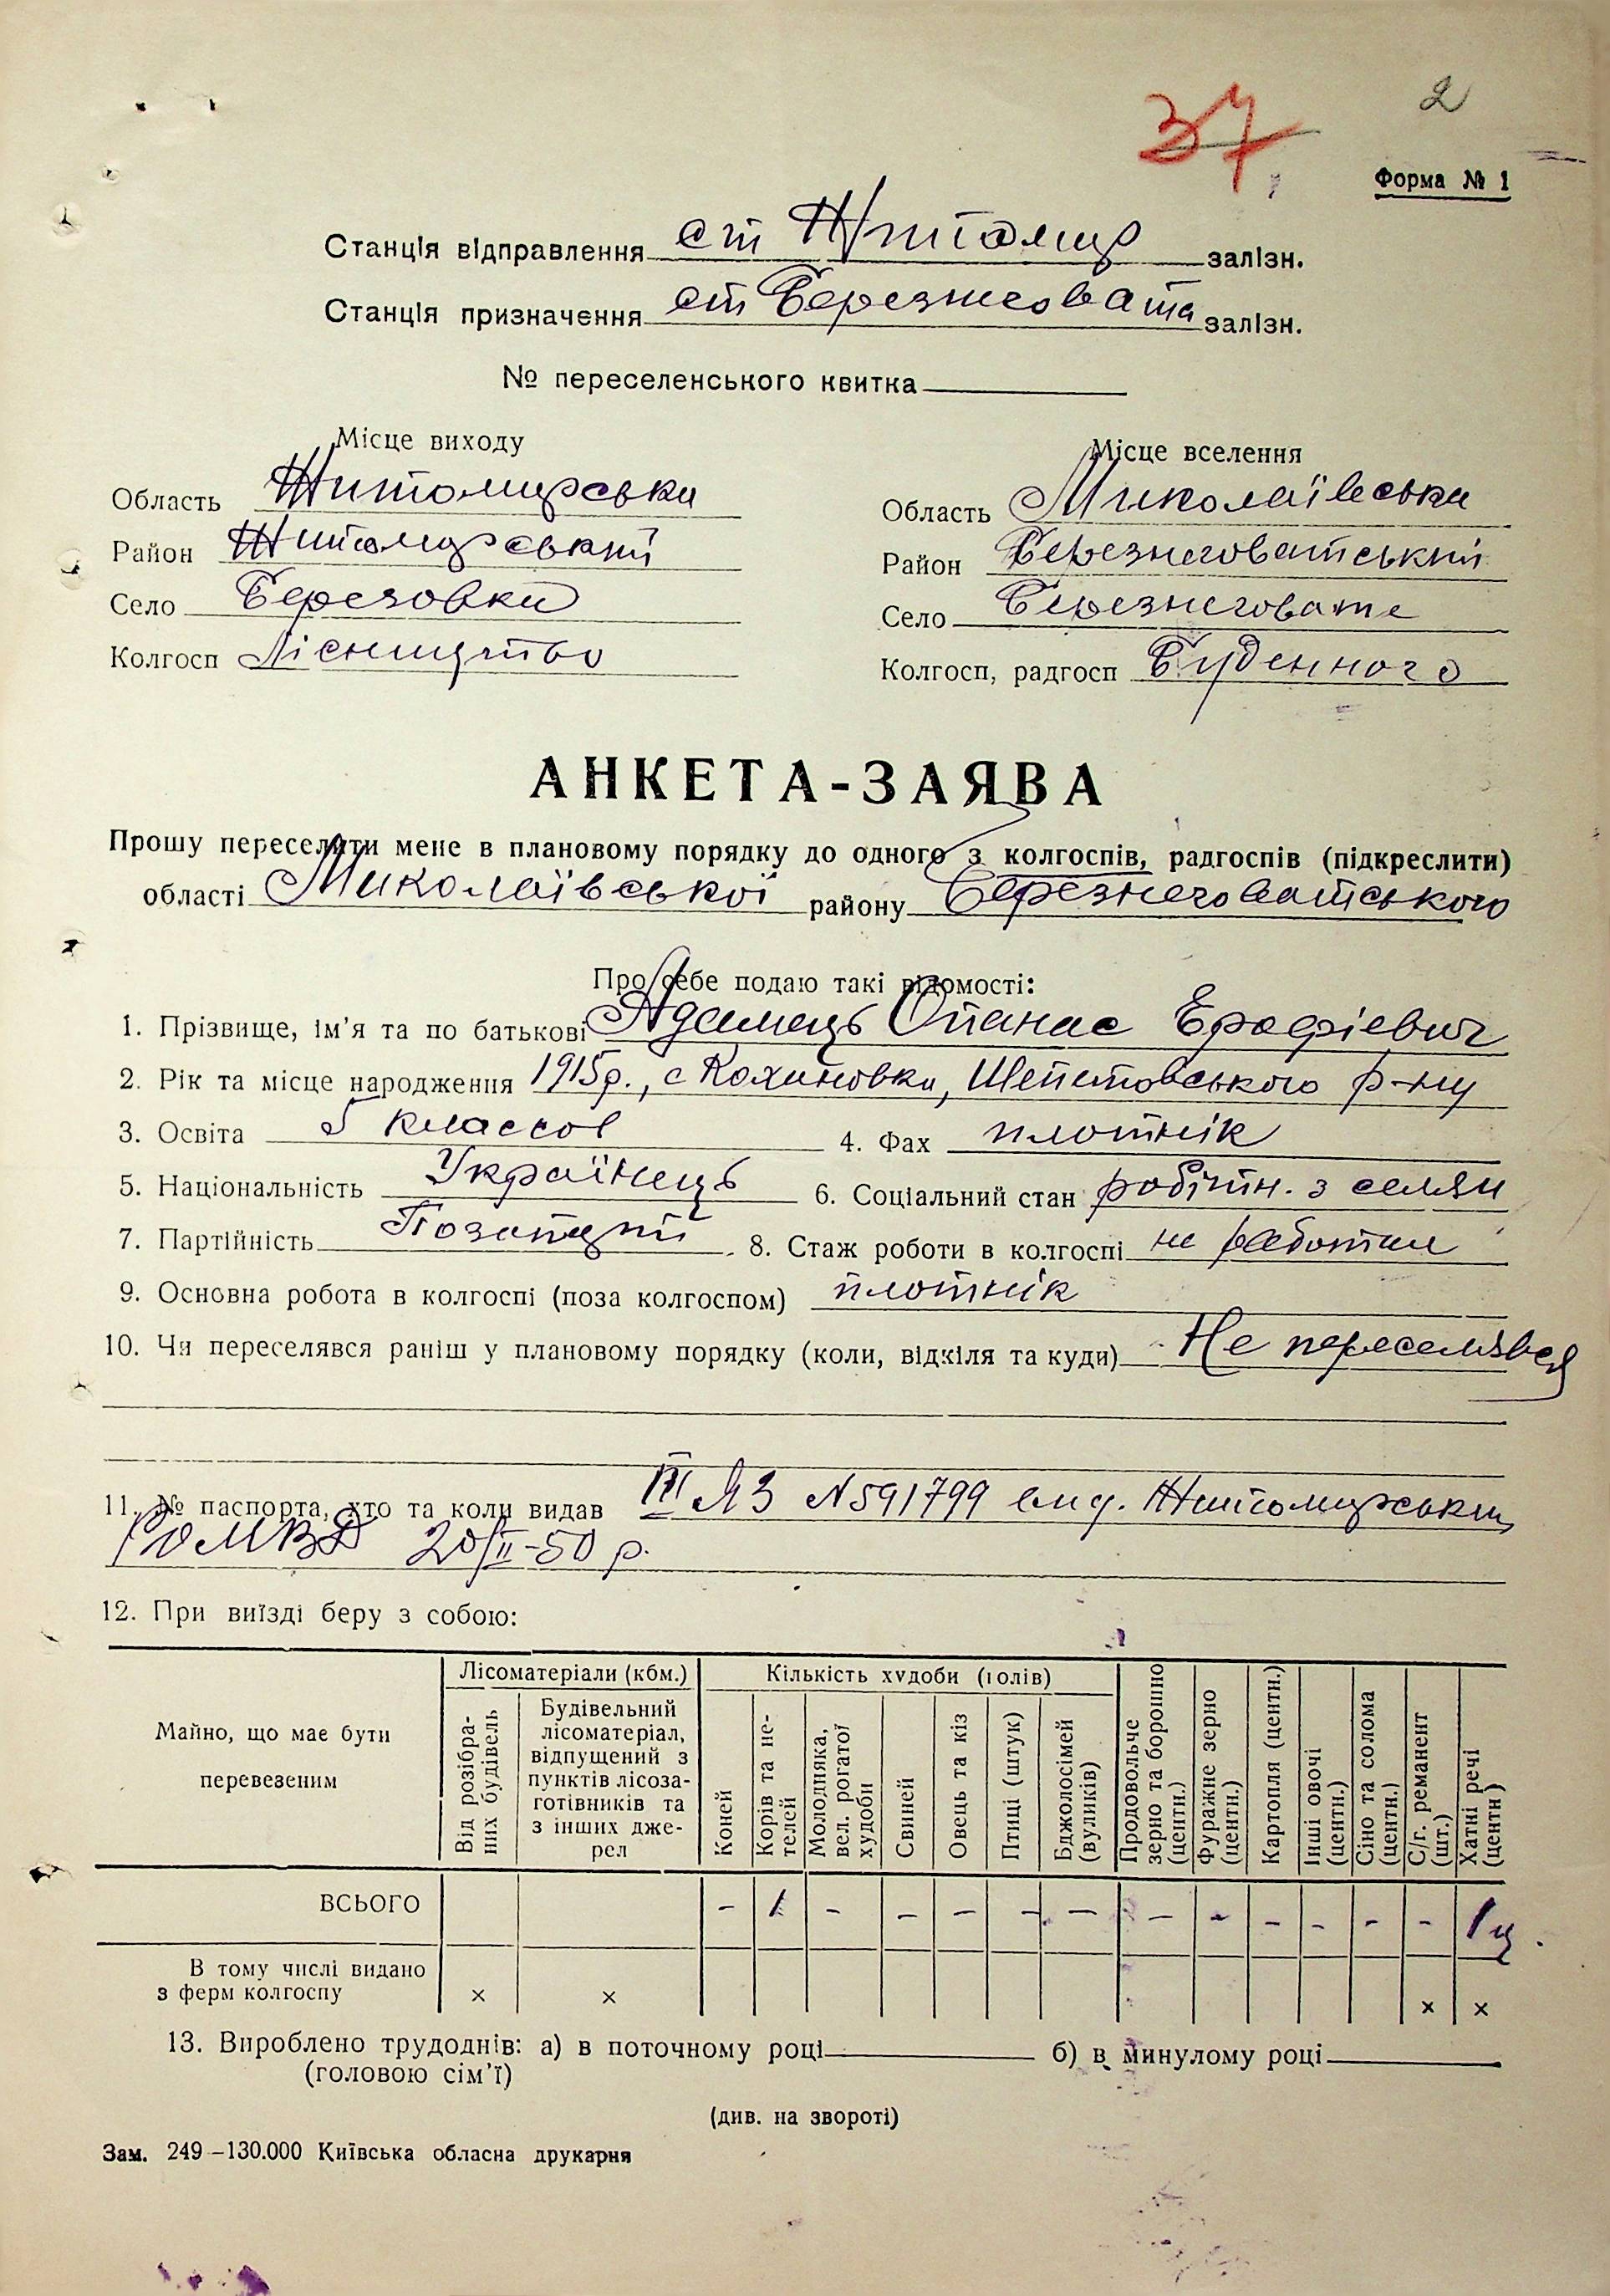 37
2
Форма № 1
Станція відправлення ст Житомир залізн.
Станція призначення ст Березнеговата залізн.
№ переселенського квитка
Місце виходу
Область Житомирська
Район Житомирський
Село Березовка
Колгосп Лісництво
Місце вселення
Область Миколаївська
Район Березнеговатський
Село Березнеговате
Колгосп, радгосп Буденного
АНКЕТА-ЗАЯВА
Прошу переселити мене в плановому порядку до одного з колгоспів, радгоспів (підкреслити)
області Миколаївської району Березнеговатського
Про себе подаю такі відомості:
1. Прізвище, ім'я та по батькові Адамець Опанас Ерофієвич
2. Рік та місце народження 1915р., с Шепетовського р-ну
3. Освіта 5 классов 4. Фах плотнік
5. Національність Українець 6. Соціальний стан робітн. з селян
7. Партійність Позапарт 8. Стаж роботи в колгоспі не работал
9. Основна робота в колгоспі (поза колгоспом) плотнік
10. Чи переселявся раніш у плановому порядку (коли, відкіля та куди) Не переселявся
11. № паспорта, хто та коли видав III ЯЗ N 591799 вид. Житомирським
РОМВД 20/II-50 р.
12. При виїзді беру з собою:
Майно, що має бути перевезеним
Лісоматеріали (кбм.)
Від розібраних будівель
Будівельний лісоматеріал, відпущений з пунктів лісозаготівників та з інших джерел
Кількість худоби (голів)
Коней
Корів та нетелей
Молодняка, вел. рогатої худоби
Свиней
Овець та кіз
Птиці (штук)
Бджолосімей (вуликів)
Продовольче зерно та борошно (центн.)
Фуражне зерно (центн.)
Картопля (центн.)
Інші овочі (центн.)
Сіно та солома (центн.)
С/г. реманент (шт.)
Хатні речі (центн)
ВСЬОГО - 1 - - - - - - - - - - - 1 ц.
В тому числі видано з ферм колгоспу × × × ×
13. Вироблено трудоднів: а) в поточному році б) в минулому році
(головою сім'ї)
(див. на звороті)
Зам. 249-130.000 Київська обласна друкарня